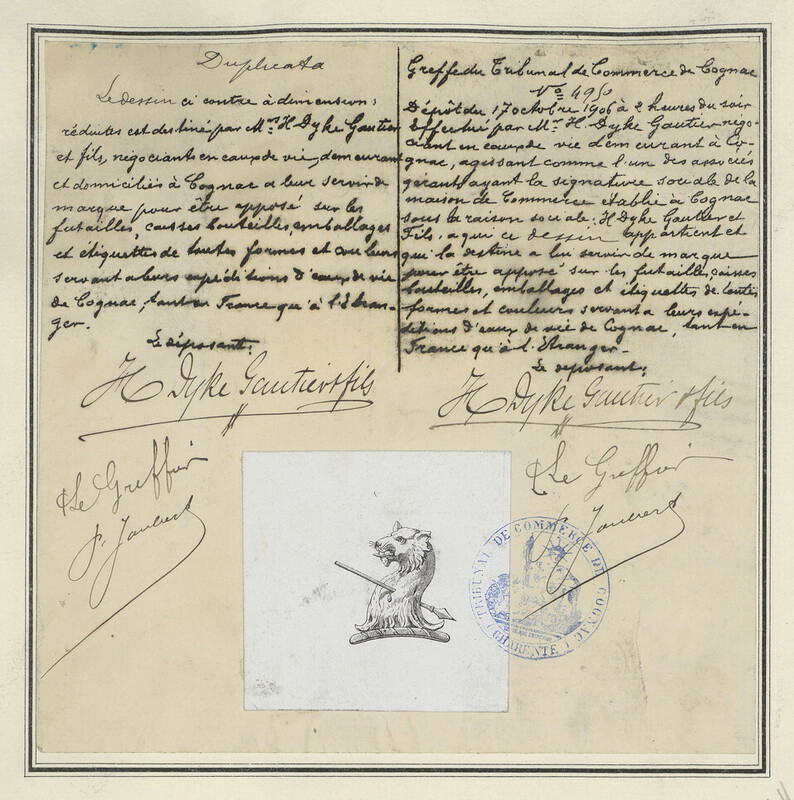 Duplicata
Le dessin ci contre à dimensions
réduites est destiné par M.rs H. Dyke Gautier
et fils, négociants en eaux de vie, demeurant
et domiciliés à Cognac a leur servir de
marque pour être apposé sur les
futailles, caisses bouteilles, emballages
et étiquettes de toutes formes et couleurs
servant a leurs expéditions d'eaux de vie
de Cognac, tant en France qu'à l'Etran-
ger.
Le déposant:
H Dyke Gautier & fils
Le Greffier
Greffe du Tribunal de Commerce de Cognac
Dépôt du 17 octobre 1906 à 2 heures du soir
Effectué par M.r H. Dyke Gautier négo-
ciant en eaux de vie demeurant à Co-
gnac, agissant comme l'un des associés
gérants ayant la signature sociale de la
maison de Commerce établie à Cognac
sous la raison sociale: H Dyke Gautier et
Fils, a qui ce dessin appartient et
qui la destine a lui servir de marque
pour être apposé sur les futailles, caisses
bouteilles, emballages et étiquettes de toutes
formes et couleurs servant a leurs expé-
ditions d'eaux de vie de Cognac, tant en
France qu'à l'Etranger.
Le déposant:
H Dyke Gautier & fils
Le Greffier
TRIBUNAL DE COMMERCE DE COGNAC
CHARENTE